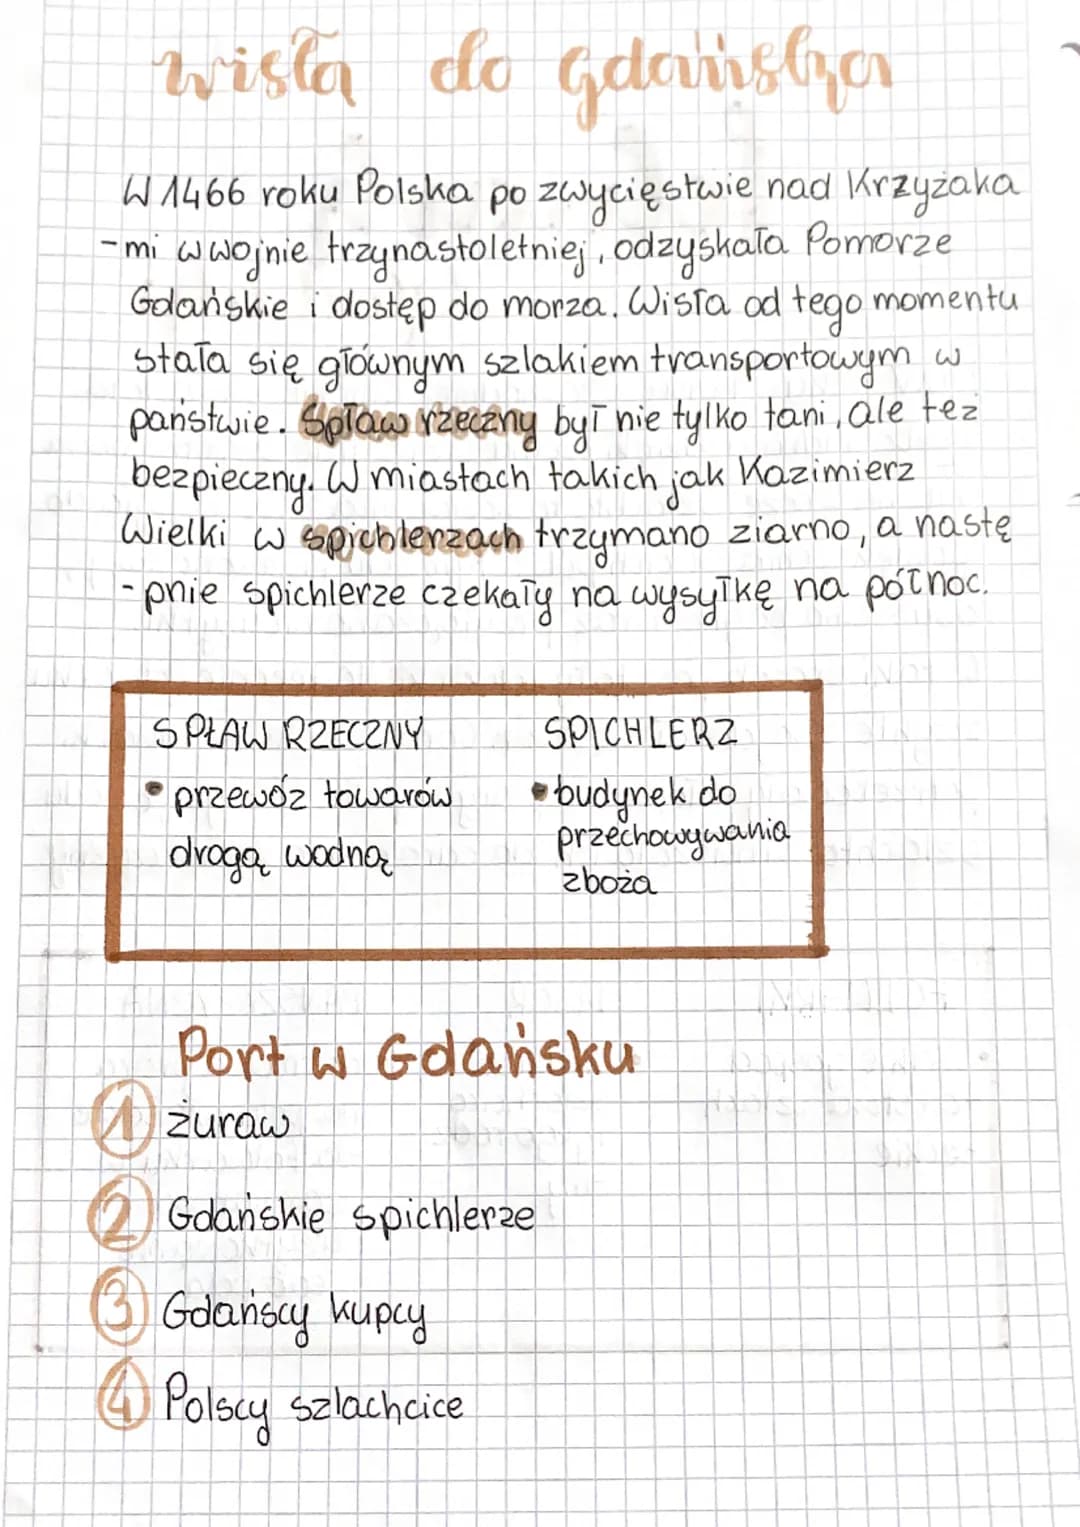 wisła do Gdańska
W 1466 roku Polska po zwycięstwie nad Krzyżaka
-mi w wojnie trzynastoletniej, odzyskała Pomorze
Gdańskie i dostęp do morza. Wisła od tego momentu
stała się głównym szlakiem transportowym w
państwie. Spław rzeczny był nie tylko tani, ale też
bezpieczny. W miastach takich jak Kazimierz
Wielki w spichlerzach trzymano ziarno, a nastę
-pnie spichlerze czekały na wysyłkę na północ.
SPŁAW RZECZNY
• przewóz towarów
drogą wodną
SPICHLERZ
• budynek do
przechowywania
zboża
Port w Gdańsku
1 żuraw
2 Gdańskie spichlerze
3 Gdańscy kupcy
4 Polscy szlachcice